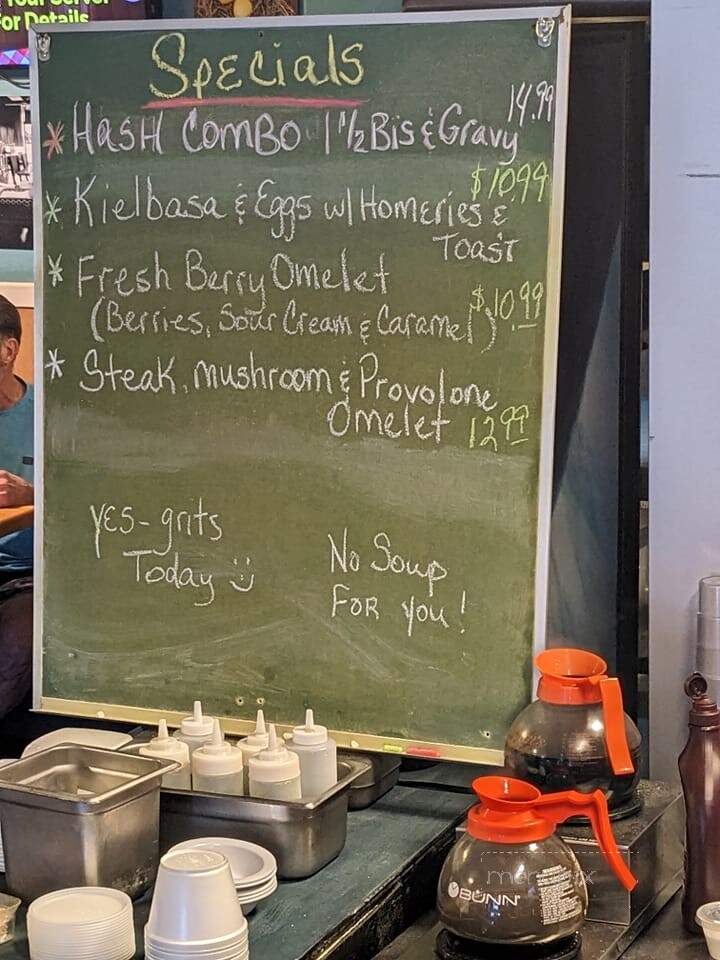 Your Server
For Details
Specials
* Hash Combo 1 1/2 Bis & Gravy 14.99
* Kielbasa & Eggs w/ Homeries & $10.99
Toast
* Fresh Berry Omelet
(Berries, Sour Cream & Caramel) $10.99
* Steak, mushroom & Provolone
Omelet 12.99
Yes - grits
Today
No Soup
For you!
BUNN